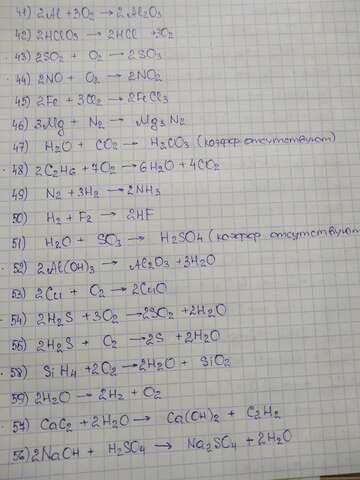 41) 2Al + 3O₂ → 2Al₂O₃
42) 2HClO₃ → 2HCl + 3O₂
43) 2SO₂ + O₂ → 2SO₃
44) 2NO + O₂ → 2NO₂
45) 2Fe + 3Cl₂ → 2FeCl₃
46) 3Mg + N₂ → Mg₃N₂
47) H₂O + CO₂ → H₂CO₃ (коэфер отсутствуют)
48) 2C₂H₆ + 7O₂ → 6H₂O + 4CO₂
49) N₂ + 3H₂ → 2NH₃
50) H₂ + F₂ → 2HF
51) H₂O + SO₃ → H₂SO₄ (коэфер отсутствуют
52) 2Al(OH)₃ → Al₂O₃ + 3H₂O
53) 2Cu + O₂ → 2CuO
54) 2H₂S + 3O₂ → 2SO₂ + 2H₂O
55) 2H₂S + O₂ → 2S + 2H₂O
58) SiH₄ + 2O₂ → 2H₂O + SiO₂
59) 2H₂O → 2H₂ + O₂
57) CaC₂ + 2H₂O → Ca(OH)₂ + C₂H₂
56) 2NaOH + H₂SO₄ → Na₂SO₄ + 2H₂O